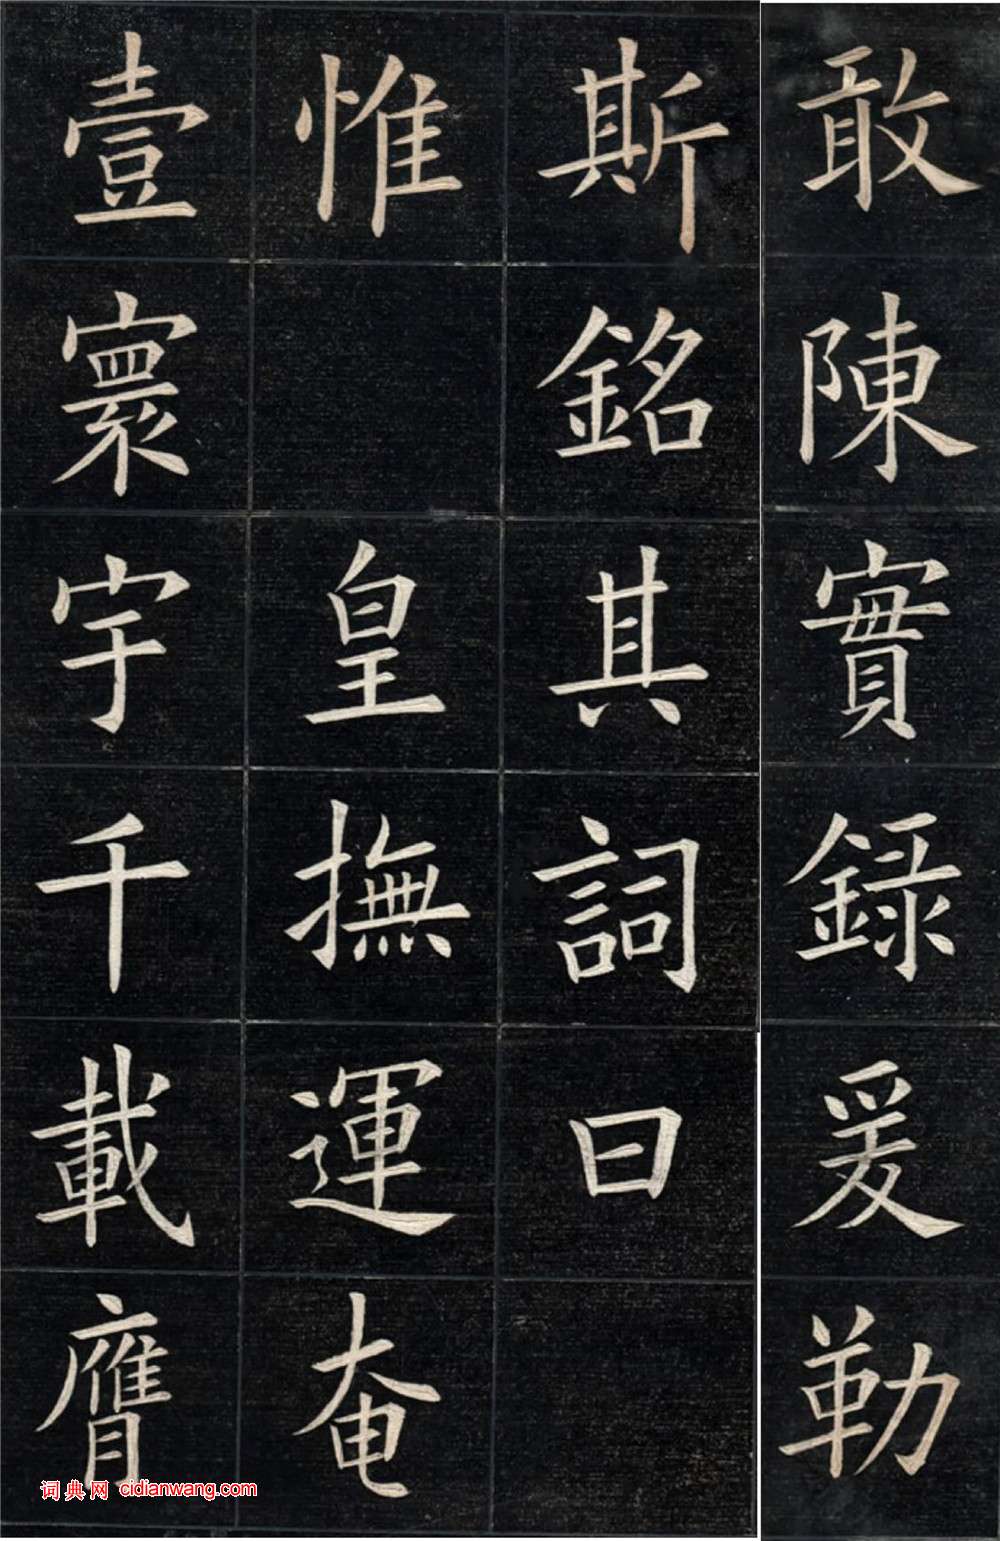 敢陳實録爰勒
斯銘其詞曰
惟皇撫運奄
壹寰宇千載膺
词典网 cidianwang.com